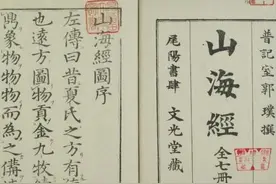 晉記室郭璞撰
山海經
全七冊
尾陽書肆 文光堂藏
山海經圖序
左傳曰昔夏氏之方有
也遠方圖物貢金九牧
象物物物而為之備